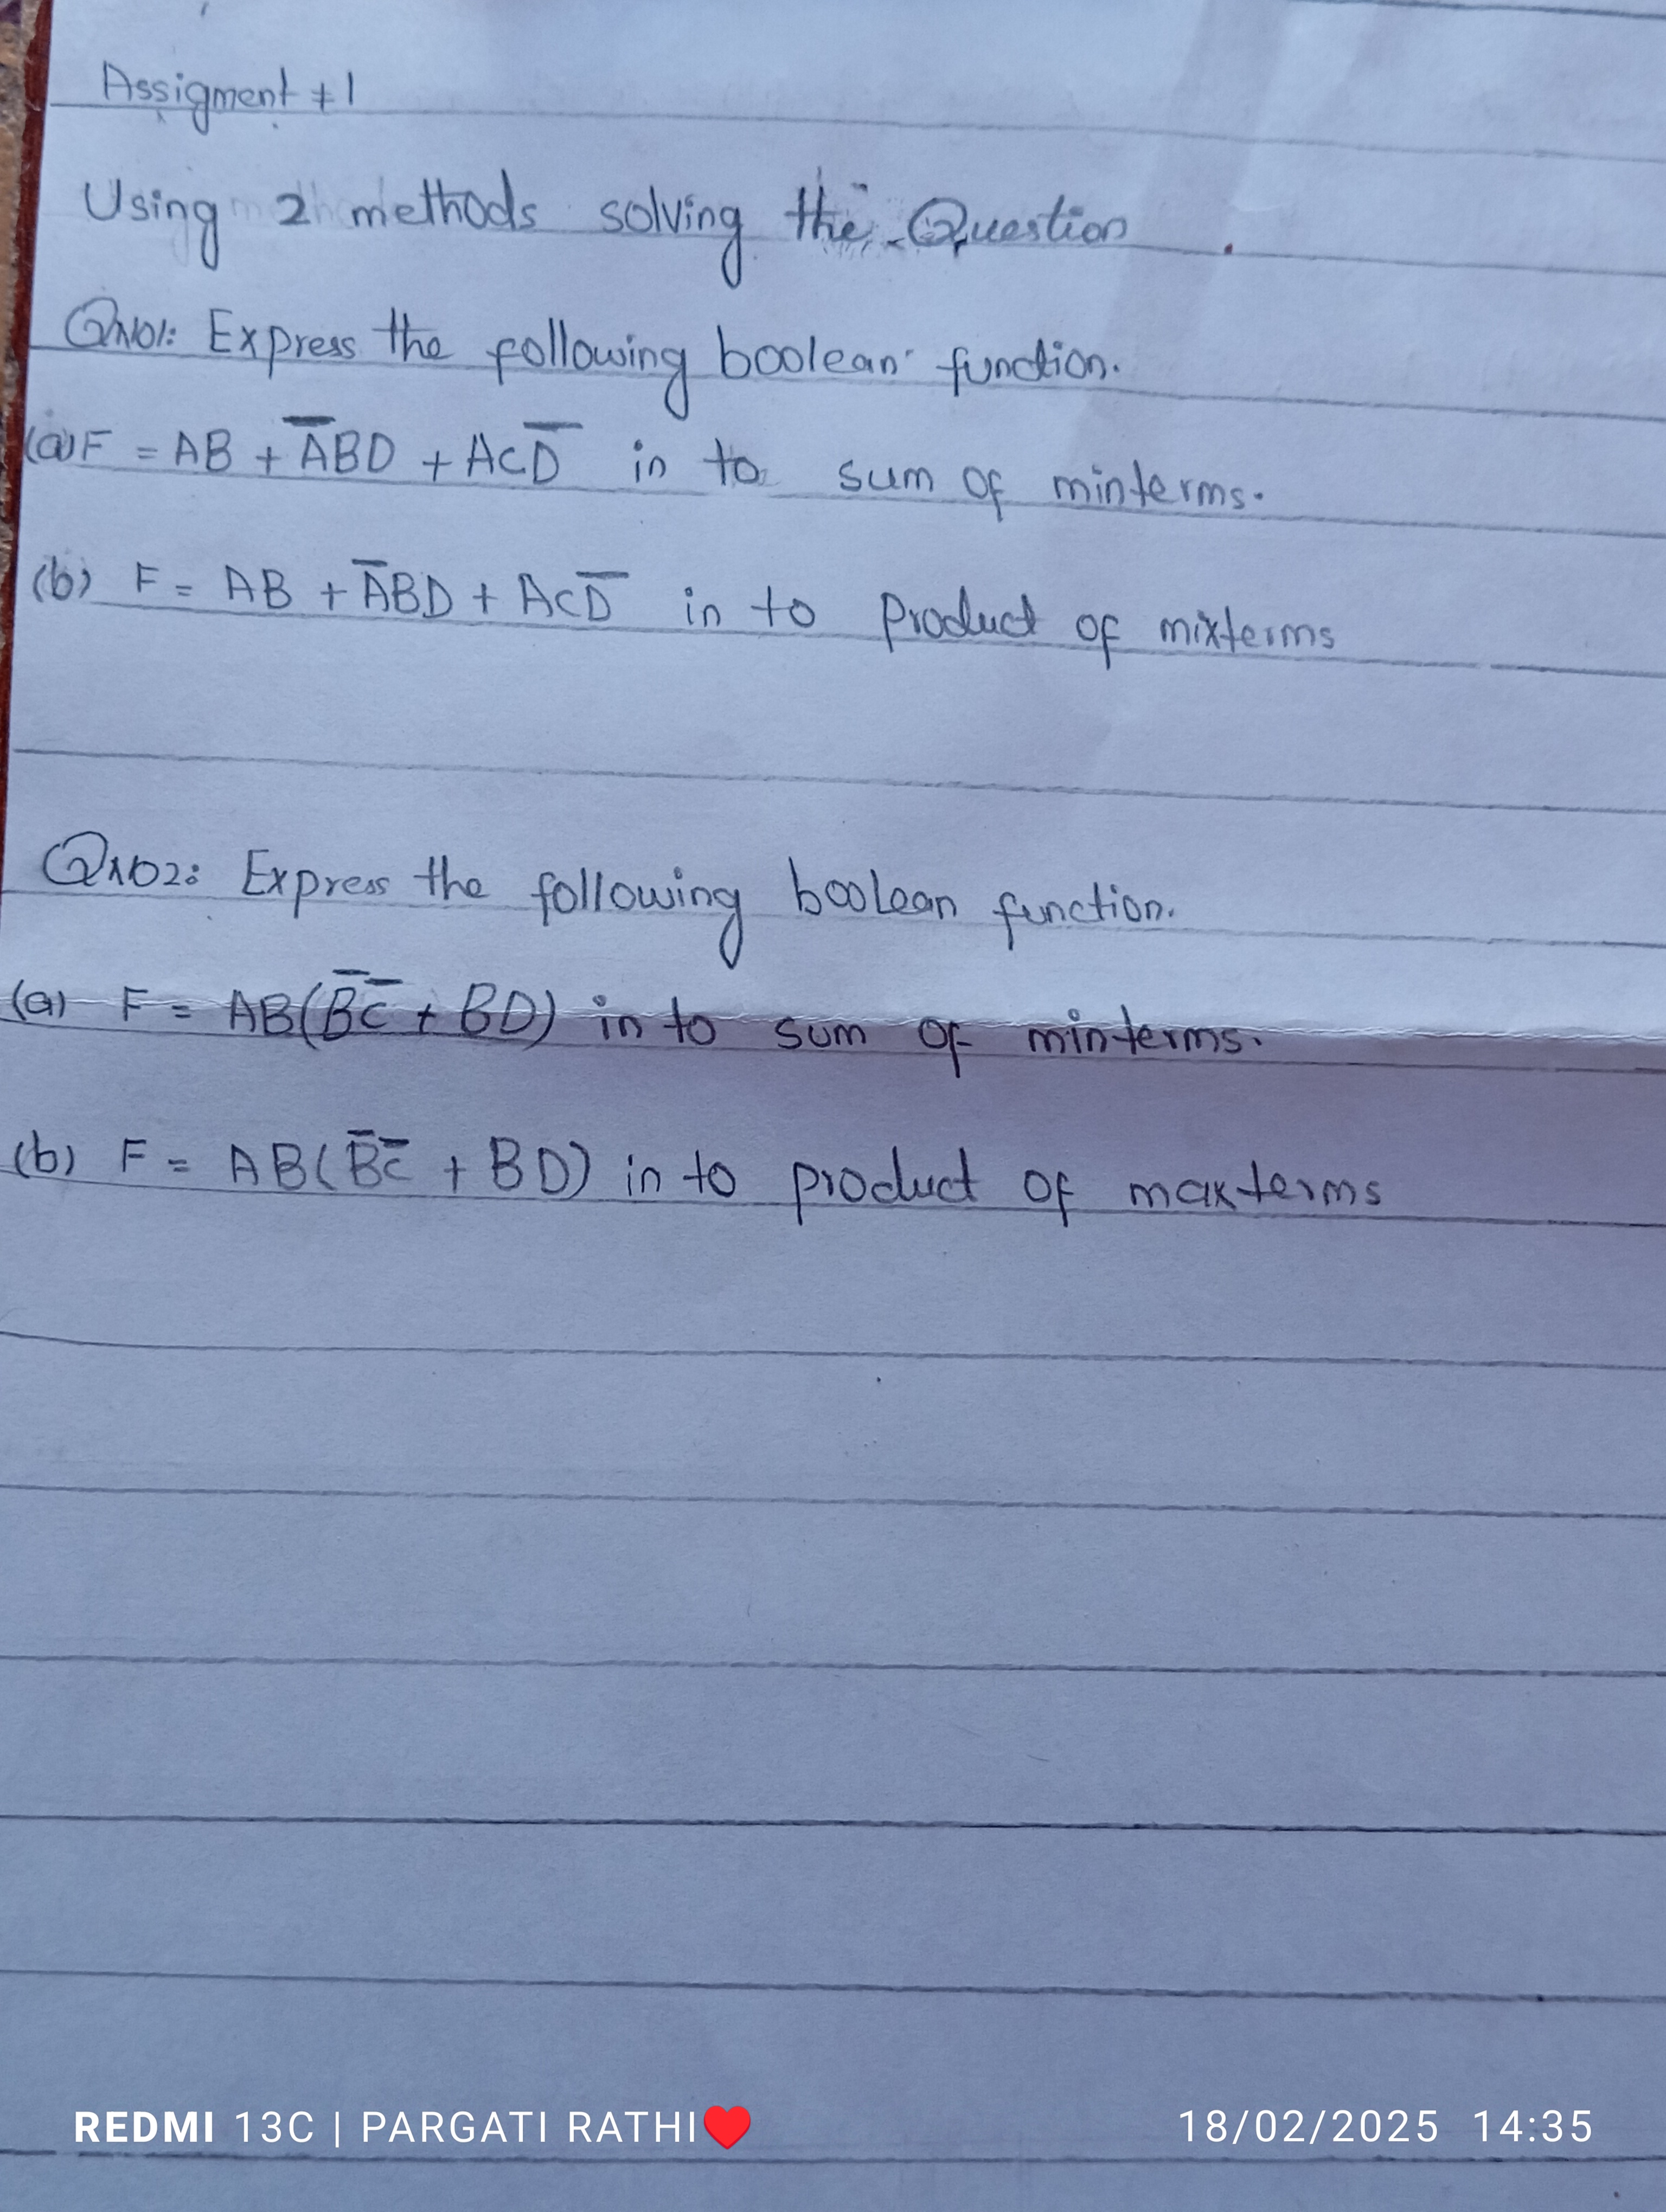 Assigment #1
Using 2 methods solving the Question
QNo1: Express the following boolean function.
(a) F = AB + A̅BD + ACD̅ in to sum of minterms.
(b) F = AB + A̅BD + ACD̅ in to Product of mixterms
QNo2: Express the following boolean function.
(a) F = AB(B̅C̅ + BD) in to sum of minterms.
(b) F = AB(B̅C̅ + BD) in to product of maxterms
REDMI 13C | PARGATI RATHI❤
18/02/2025 14:35